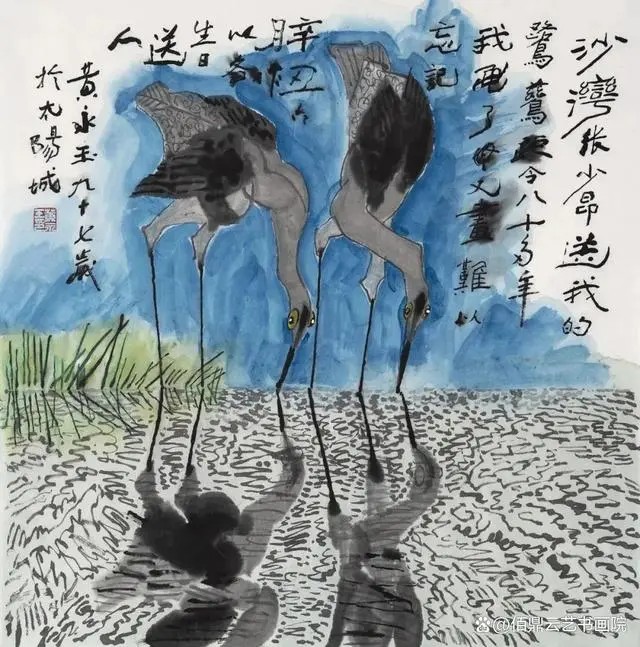 沙灣張小昂送我的
鷺鷥今八十多年
我畫了又畫難以
忘記
辛丑
以
生日
送
人
黄永玉九十七歲
於太陽城
佰鼎云艺书画院